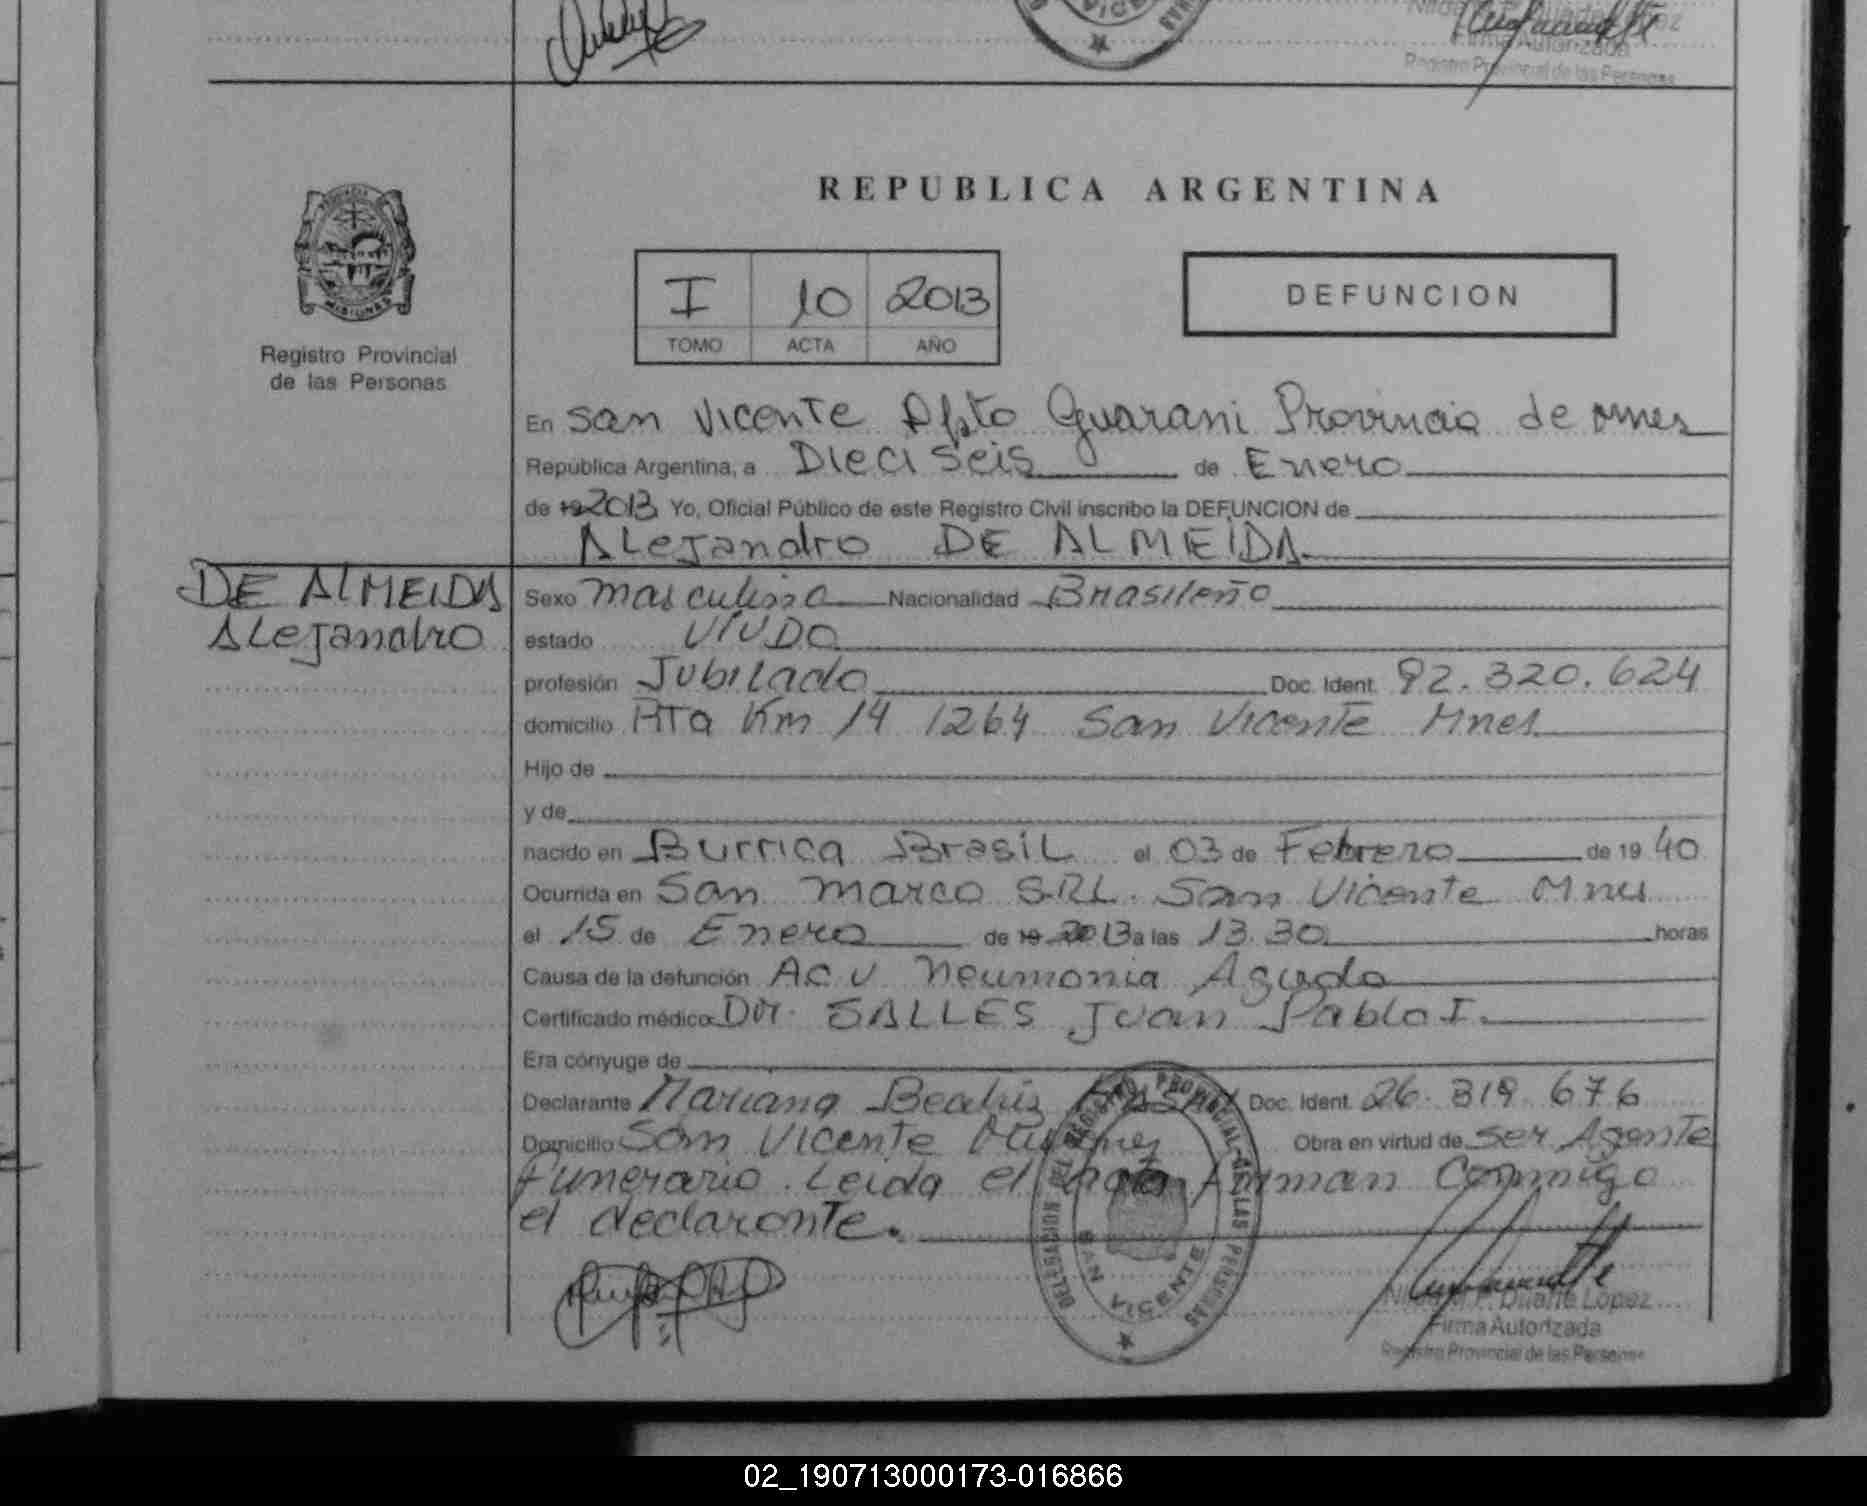 REPUBLICA ARGENTINA
Registro Provincial
de las Personas
I 10 2013
TOMO ACTA AÑO
DEFUNCION
En San Vicente Dpto Guarani Provincia de Mnes
República Argentina, a Dieciseis de Enero
de 19 2013 Yo, Oficial Público de este Registro Civil inscribo la DEFUNCION de
Alejandro DE ALMEIDA
DE ALMEIDA
Alejandro
Sexo Masculino Nacionalidad Brasileño
estado VIUDO
profesión Jubilado Doc. Ident. 92.320.624
domicilio RTa Km 14 1264 San Vicente Mnes
Hijo de
y de
nacido en Burrica Brasil el 03 de Febrero de 19 40
Ocurrida en San Marco SRL. San Vicente Mnes
el 15 de Enero de 19 2013 a las 13.30 horas
Causa de la defunción Ac.v Neumonia Aguda
Certificado médico Dr. SALLES Juan Pablo I.
Era cónyuge de
Declarante Mariana Beatriz Doc. Ident. 26.819.676
Domicilio San Vicente Obra en virtud de ser Agente
Funerario. Leida el acta Firman Conmigo
el declarante.
DELEGACION DEL REGISTRO PROVINCIAL DE LAS PERSONAS
SAN VICENTE
Nilda Duarte Lopez
Firma Autorizada
Registro Provincial de las Personas
02_190713000173-016866